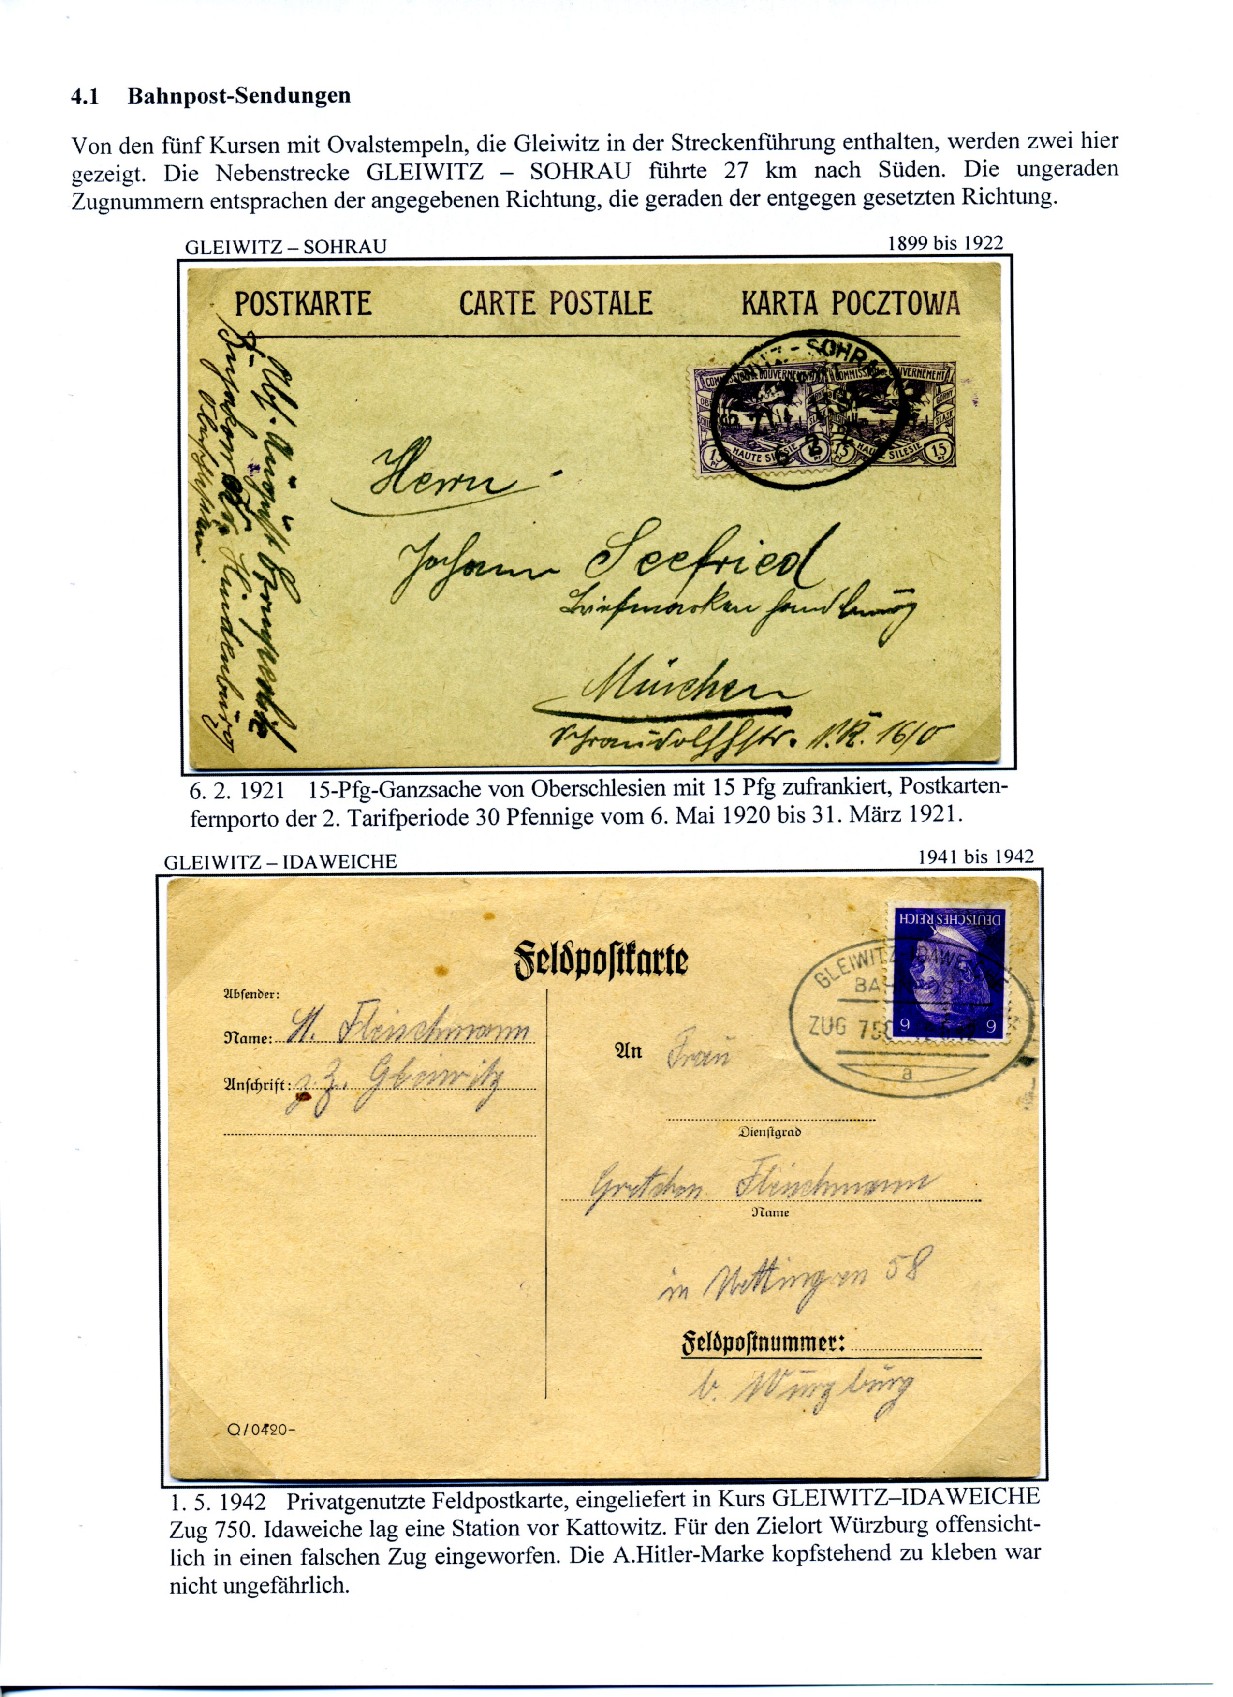 4.1 Bahnpost-Sendungen
Von den fünf Kursen mit Ovalstempeln, die Gleiwitz in der Streckenführung enthalten, werden zwei hier
gezeigt. Die Nebenstrecke GLEIWITZ – SOHRAU führte 27 km nach Süden. Die ungeraden
Zugnummern entsprachen der angegebenen Richtung, die geraden der entgegen gesetzten Richtung.
GLEIWITZ – SOHRAU 1899 bis 1922
POSTKARTE CARTE POSTALE KARTA POCZTOWA
SOHRAU
COMMISSION DE GOUVERNEMENT COMMISSION DE GOUVERNEMENT
HAUTE SILESIE HAUTE SILESIE
15 15 15
Abs. August
Hindenburg
Herrn
Johann Seefried
Briefmarkenhandlung
München
Schraudolfstr. N.R. 16/0
6. 2. 1921 15-Pfg-Ganzsache von Oberschlesien mit 15 Pfg zufrankiert, Postkarten-
fernporto der 2. Tarifperiode 30 Pfennige vom 6. Mai 1920 bis 31. März 1921.
GLEIWITZ – IDAWEICHE 1941 bis 1942
DEUTSCHES REICH
6 6
GLEIWITZ IDAWE
BAHNPOST
ZUG 750
a
Feldpostkarte
Absender:
Name: Fleischmann
Anschrift: z. Z. Gleiwitz
An Frau
Dienstgrad
Gretchen Fleischmann
Name
in Uettingen 58
Feldpostnummer:
b. Würzburg
Q/0420-
1. 5. 1942 Privatgenutzte Feldpostkarte, eingeliefert in Kurs GLEIWITZ–IDAWEICHE
Zug 750. Idaweiche lag eine Station vor Kattowitz. Für den Zielort Würzburg offensicht-
lich in einen falschen Zug eingeworfen. Die A.Hitler-Marke kopfstehend zu kleben war
nicht ungefährlich.